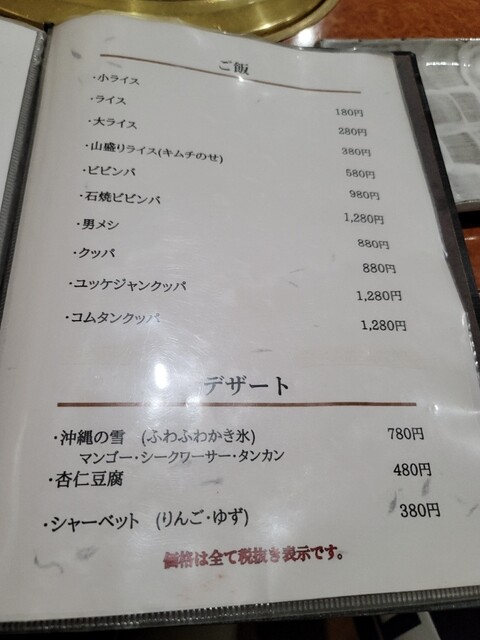 ご飯
・小ライス 180円
・ライス 280円
・大ライス 380円
・山盛りライス(キムチのせ) 580円
・ビビンバ 980円
・石焼ビビンバ 1,280円
・男メシ 880円
・クッパ 880円
・ユッケジャンクッパ 1,280円
・コムタンクッパ 1,280円
デザート
・沖縄の雪 (ふわふわかき氷) 780円
マンゴー・シークワーサー・タンカン
・杏仁豆腐 480円
・シャーベット (りんご・ゆず) 380円
価格は全て税抜き表示です。